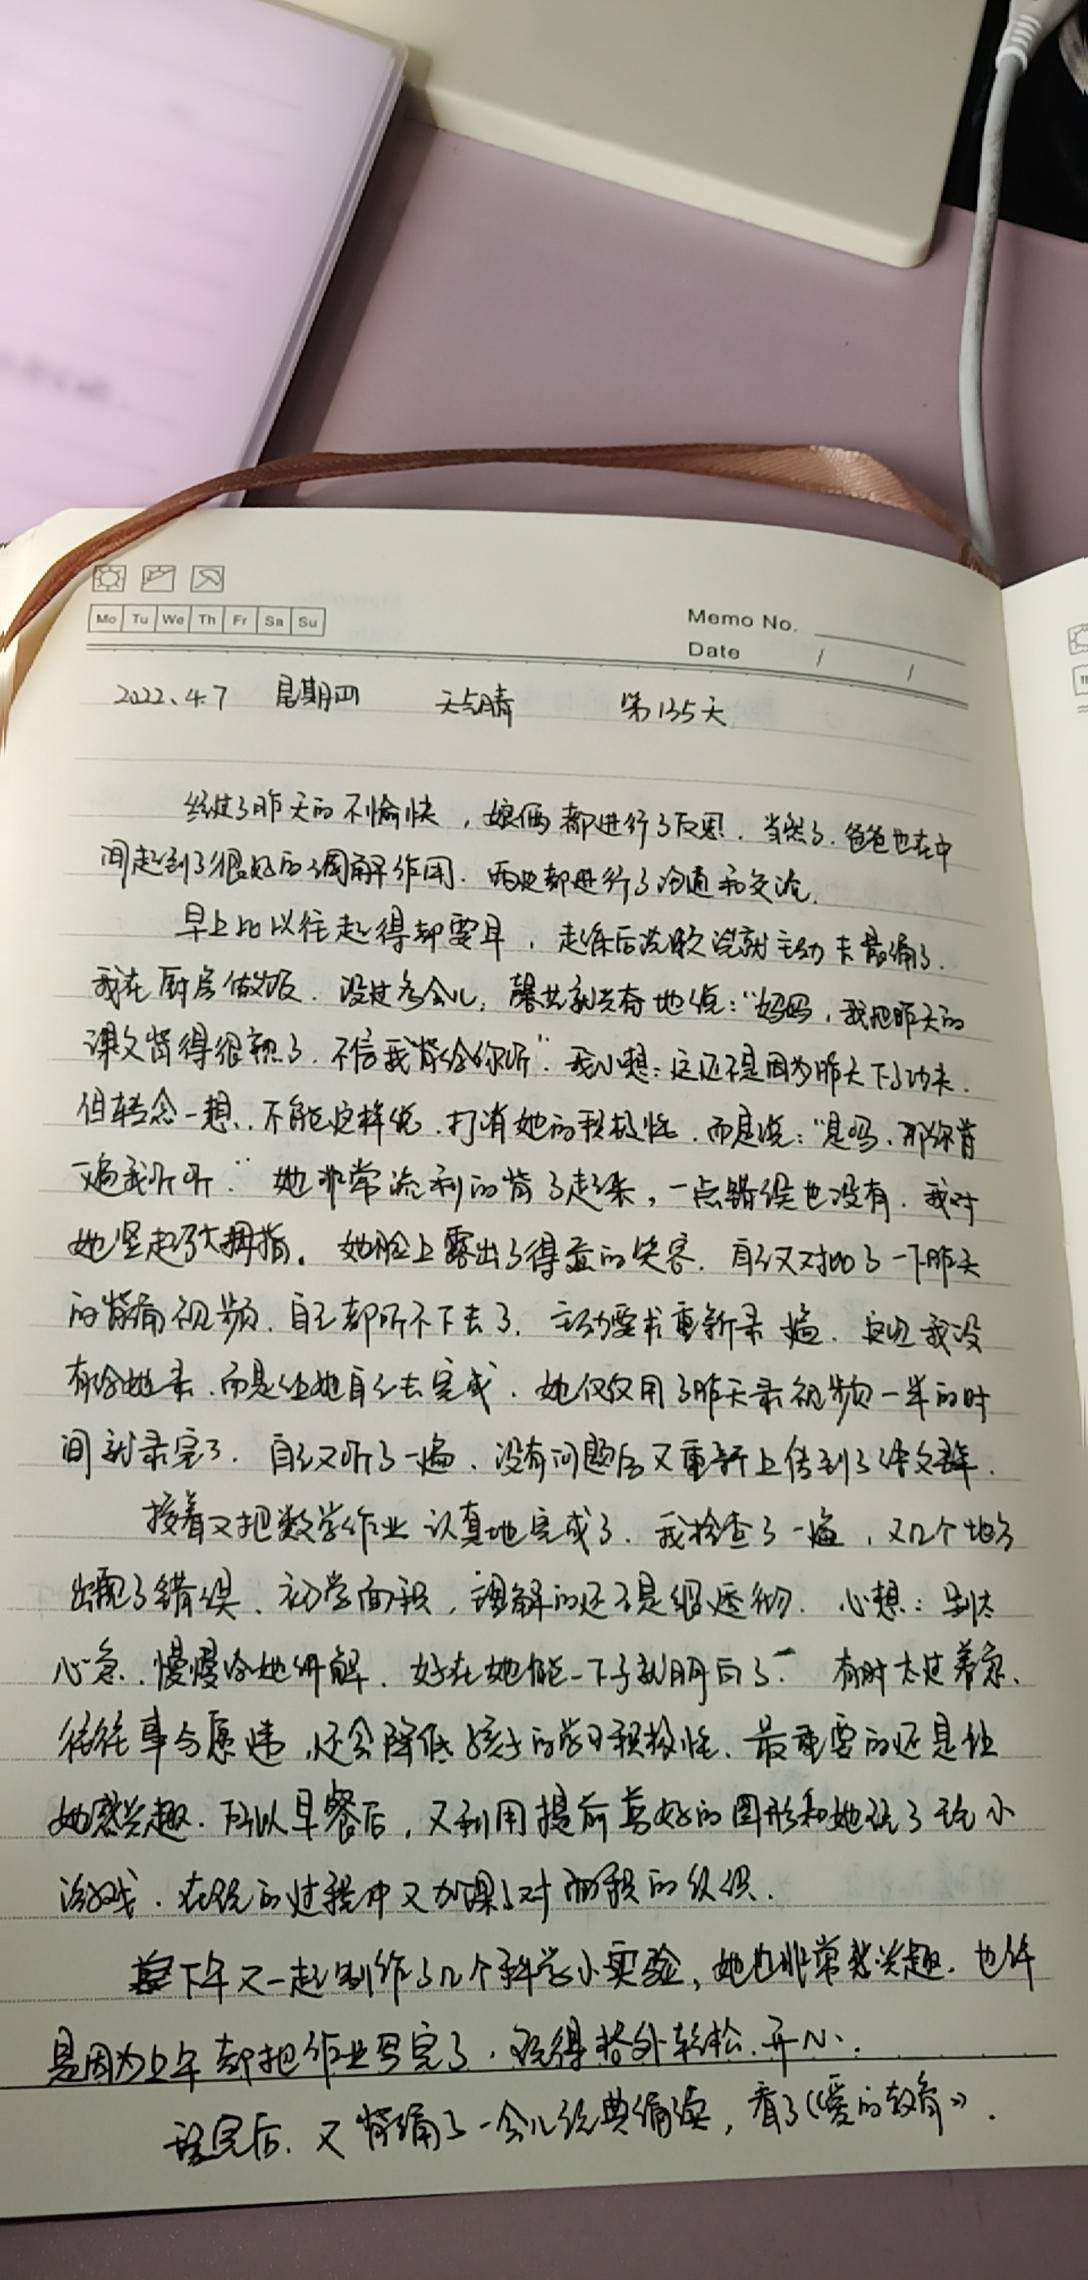 Mo Tu We Th Fr Sa Su
Memo No.
Date / /
2022.4.7 星期四 天气晴 第135天
经过了昨天的不愉快，娘俩都进行了反思．当然了．爸爸也在中
间起到了很好的调解作用．两边都进行了沟通和交流．
早上比以往起得都要早，起床后洗漱完就主动去背诵了．
我在厨房做饭．没过多会儿，就兴奋地说：“妈妈，我把昨天的
课文背得很熟了．不信我背给你听”．我心想：这还不是因为昨天下了功夫．
但转念一想．不能这样说．打消她的积极性．而是说：“是吗，那你背
一遍我听听．”她非常流利的背了起来，一点错误也没有．我对
她竖起了大拇指。她脸上露出了得意的笑容．自己又对比了一下昨天
的背诵视频．自己都听不下去了．主动要求重新录一遍．这次我没
有给她录．而是让她自己去完成．她仅仅用了昨天录视频一半的时
间就录完了．自己又听了一遍．没有问题后又重新上传到了语文群．
接着又把数学作业认真地完成了．我检查了一遍，又几个地方
出现了错误、初学面积，理解的还不是很透彻．心想：别太
心急．慢慢给她讲解．好在她能一下子就明白了．有时太过着急、
往往事与愿违，还会降低孩子的学习积极性、最重要的还是让
她感兴趣．所以早餐后，又利用提前剪好的图形和她玩了玩小
游戏．在玩的过程中又加深了对面积的认识．
下午又一起制作了几个科学小实验，她也非常感兴趣．也许
是因为上午都把作业写完了．玩得格外轻松．开心．
玩完后．又背诵了一会儿经典诵读，看了《爱的教育》．